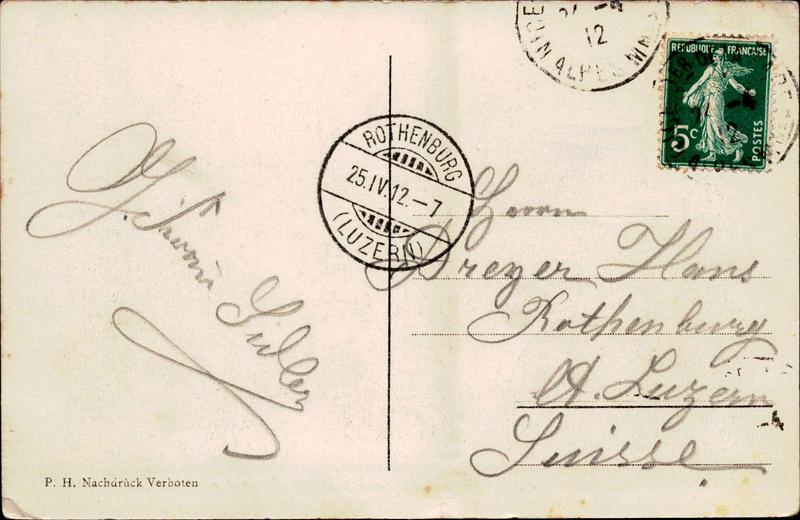 12
ALPES
RÉPUBLIQUE FRANÇAISE
5c
POSTES
ROTHENBURG
25.IV.12.–7
(LUZERN)
Herrn
Dreyer Hans
Rothenburg
Ct. Luzern
Suisse
Sidler
P. H. Nachdrück Verboten